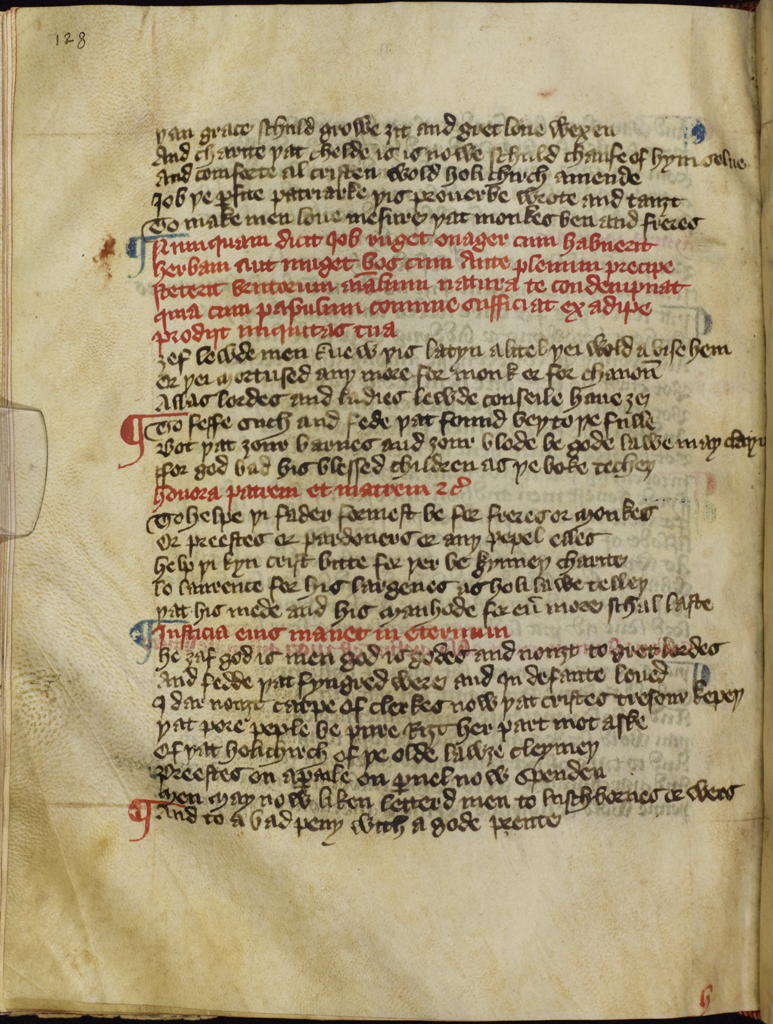 128
yan grace schuld growe zit and gret loue wexen
And charite yat chelde is is nowe schuld chaufe of hym selue
And comforte al cristen wold holi chirch amende
Job ye pfite patriarke yis prouerbe wrote and tauzt
To make men loue mesure yat monkes ben and freres
¶ Numquam dicit Job ruget onager cum habuerit
herbam aut muget bos cum Ante plenum precipe
steterit brutorum aīalium natura te condempnat
quia cum pabulum commune sufficiat ex adipe
prodijt iniquitas tua
zef lewde men knew yis latyn a litel yei wold a vise hem
Er yei mortused any more for monk er for chanoñ
Allas lordes and ladies lewde conseile haue ze
¶ To feffe such and fede yat found bey to ye fulle
Bot yat zour barnes and zour blode be gode lawe may claym
ffor god bad his blessed children as ye boke techey
honora patrem et matrem &c
To helpe yi fader formest be for freres or monkes
Or preestes or pardoners or any pepel elles
help yi kyn crist bitte for yer be gynney charite
lo laurence for his largenes as holi lawe telley
yat his mede and his manhode for eu̅ more schal laste
¶ Iusticia eius manet in eternum
he zaf god is men god is godes and nouzt to gret lordes
And fedde yat fyngred were and In defaute leued
I dar nouzt carpe of clerkes now yat cristes tresour kepey
yat pore peple be pure rizt her part mot aske
Of yat holi chirch of ye olde lawze cleymey
Preestes on aparaile on pnel now spenden
Men may now liken letterd men to luschbornes or wers
¶ And to a bad peny with a gode prente